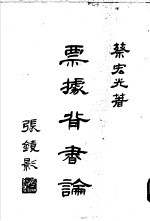 蔡宏光著
票據背書論
張鏡影